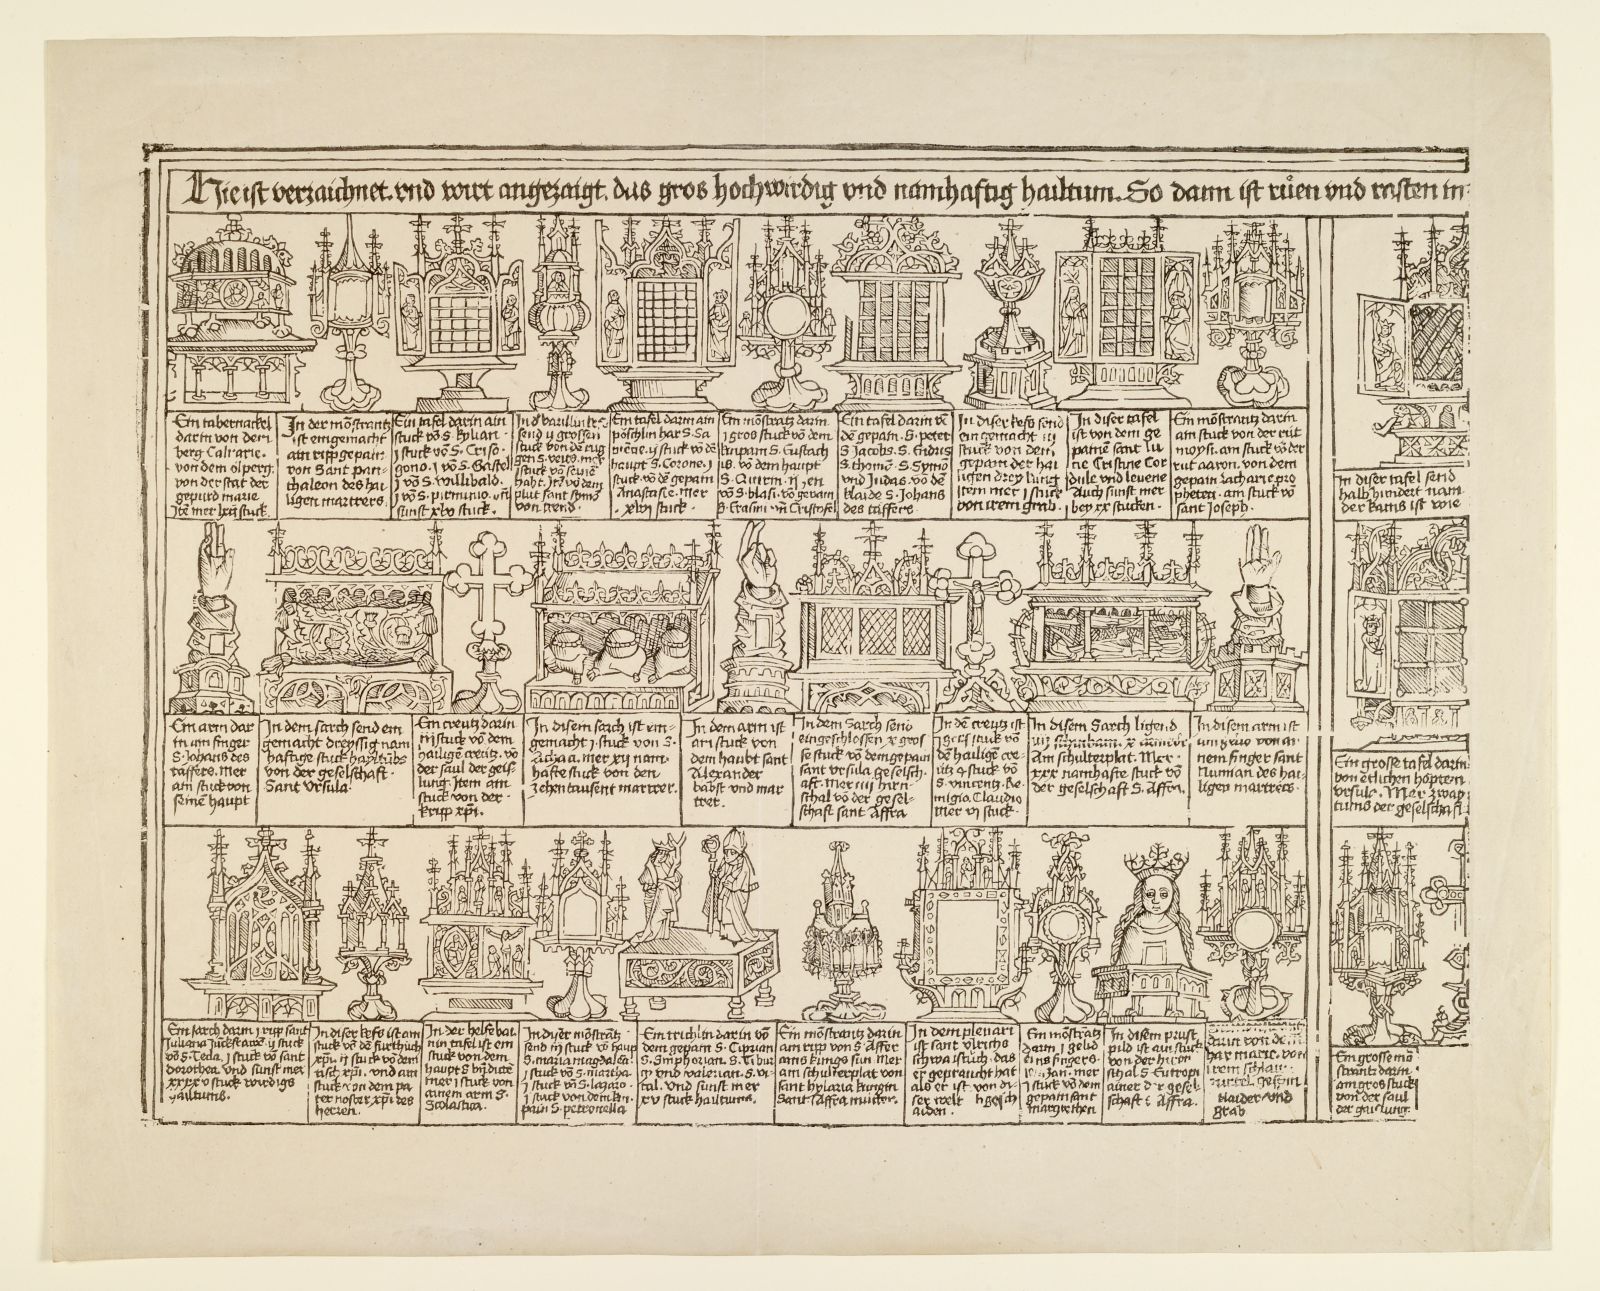 Hie ist verzaichnet. vnd wirt angezaigt. das gros hochwirdig vnd namhaftig hailtum. So dann ist rüen vnd rasten in
Ein tabernackel
darin von dem
berg Calvarie.
von dem ölperg
von der stat der
gepurd marie
Itē mer lxij stuck
In der mōstrantz
ist eingemacht
ain ripp gepain
von Sant pan-
thaleon des hai
ligen martrers.
Ein tafel darin ain
stuck vō S. kylian.
j stuck vō S. Criso-
gono. j vō S.
j vō S. willibald.
j vō S. pirminio. vn̄
sunst xlv stuck.
send ij grossen
stuck von dē rug
gen S. veits. mer
stuck vō seinē
habt. Itē vō dem
plut sant symō
von trend.
Ein tafel darin ain
pöschlin har S. Sa
bine. ij stuck vō dē
haupt S. Corone. j
stuck. vō dē gepain
Anastasie. mer
. xlvj stuck.
Ein mōstrātz darin
j gros stuck vō dem
knipain S. Eustach
ij. vō dem haupt
S. Quirin. ij
vō S. blasi. vō gepain
S. Erasim vn̄ Cristofel
Ein tafel darin vō
dē gepain. S. peter
S. Jacobs. S. Endris
S. thomē. S. Symō
vnd Judas. vō dē
klaide S. Johans
des taffers.
In diser kefs send
ein gemacht iij
stuck von dem
gepain der hai
ligen drey küng
item mer j stuck
von irem grab.
In diser tafel
ist von dem ge
paine sant lu
cie Cristine Cor
dule vnd levene
Auch sunst mer
bey xx stucken.
Ein mōstrantz darin
ain stuck von der rut
moysi. ain stuck vō der
rut aaron. von dem
gepain zacharie pro
pheten. ain stuck vō
sant Joseph.
In diser tafel send
halb hundert nam
der kains ist wie
Ein arm dar
in ain finger
S. Johans des
taffers. mer
ain stuck von
seinē haupt
In dem sarch send ein
gemacht dreyssig nam
haftige stuck haylthūs
von der geselschaft
Sant vrsula.
Ein creutz darin
iij stuck vō dem
hailigē creutz. vō
der saul der geis-
lung. Item ain
stuck von der
kripp xp̄i.
In disem sarch ist ein-
gemacht j. stuck von S.
Achaci. mer xij nam
hafte stuck von den
zehen tausent martrer.
In dem arm ist
ain stuck von
dem haubt sant
Alexander
babst vnd mar
trer.
In dem Sarch send
eingeschlossen x gros
se stuck vō dem gepain
sant vrsula geselsch.
aft. Mer iiij hirn
schal vō der gesel-
schaft sant Affra
In dē creutz ist
j gros stuck vō
dē hailigē cre
itz 4 stuck vō
S. vincentz. Re
migio. Claudio
Mer vj stuck.
In disem Sarch ligend
Ain schulterplat. Mer
xxx namhafte stuck vō
der geselschaft S. Affra.
In disem arm ist
von ai
nem finger sant
Numan des hai
ligen martrers.
Ein grosse tafel darin
von etlichen höpten
vrsule. Mer zwap
tuins der geselschafft
Ein sarch darin j ripp sant
Juliana junckfrawē. ij stuck
vō S. Tecla. j stuck vō sant
dorothea vnd sunst mer
xxxx v stuck wirdigs
hailtums.
In diser kefs ist ain
stuck vō dē fürthuch
xp̄i. ij stuck vō dem
tisch xp̄i. vnd ain
stuck von dem pa
ter noster xp̄i. des
herren.
In der helfebai
nin tafel ist ein
stuck von dem
haupt S. bn̄dicte
mer j stuck von
ainem arm S.
Scolastica.
In diser mōstrātz
send iij stuck vō haup
S. maria magdalē
j stuck vō S. martha
j stuck vō S. lazaro.
j stuck von dem kn-
pain S. petronella
Ein trichlin darin vō
dem gepain S. Ciprian
S. Simphorian. S. Tibur
cij vnd valerian. S. vi-
tal. vnd sunst mer
xv stuck hailtums.
Ein mōstrantz darin
ain ripp von S. Affer
ains küngs sun mer
ain schulterplat von
sant hylaria küngin
Sant Affra muter.
In dem plenari
ist sant vlrichs
schwaistuch. das
er gepraucht hat
als er ist von di-
ser welt
aiden.
Ein mōstratz
darin j gelid
eins fingers.
S. Jan. mer
j stuck vō dem
gepain sant
margrethen
In disem prust
pild ist ain stuck
von der hiren
schal S. Eutropi
ainer der gesel
schaft S. Affra.
darin von dem
har marie. von
irem schlair
gürtel
klaider vnd
grab
Ein grosse mō
strantz darin
ain gros stuck
von der saul
der gaislung.